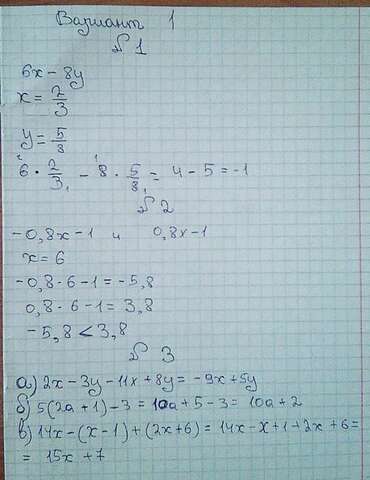 Вариант 1
№ 1
6x - 8y
x = 2/3
y = 5/8
6 · 2/3 - 8 · 5/8 = 4 - 5 = -1
№ 2
-0,8x - 1 и 0,8x - 1
x = 6
-0,8 · 6 - 1 = -5,8
0,8 · 6 - 1 = 3,8
-5,8 < 3,8
№ 3
а) 2x - 3y - 11x + 8y = -9x + 5y
б) 5(2a + 1) - 3 = 10a + 5 - 3 = 10a + 2
в) 14x - (x - 1) + (2x + 6) = 14x - x + 1 + 2x + 6 =
= 15x + 7